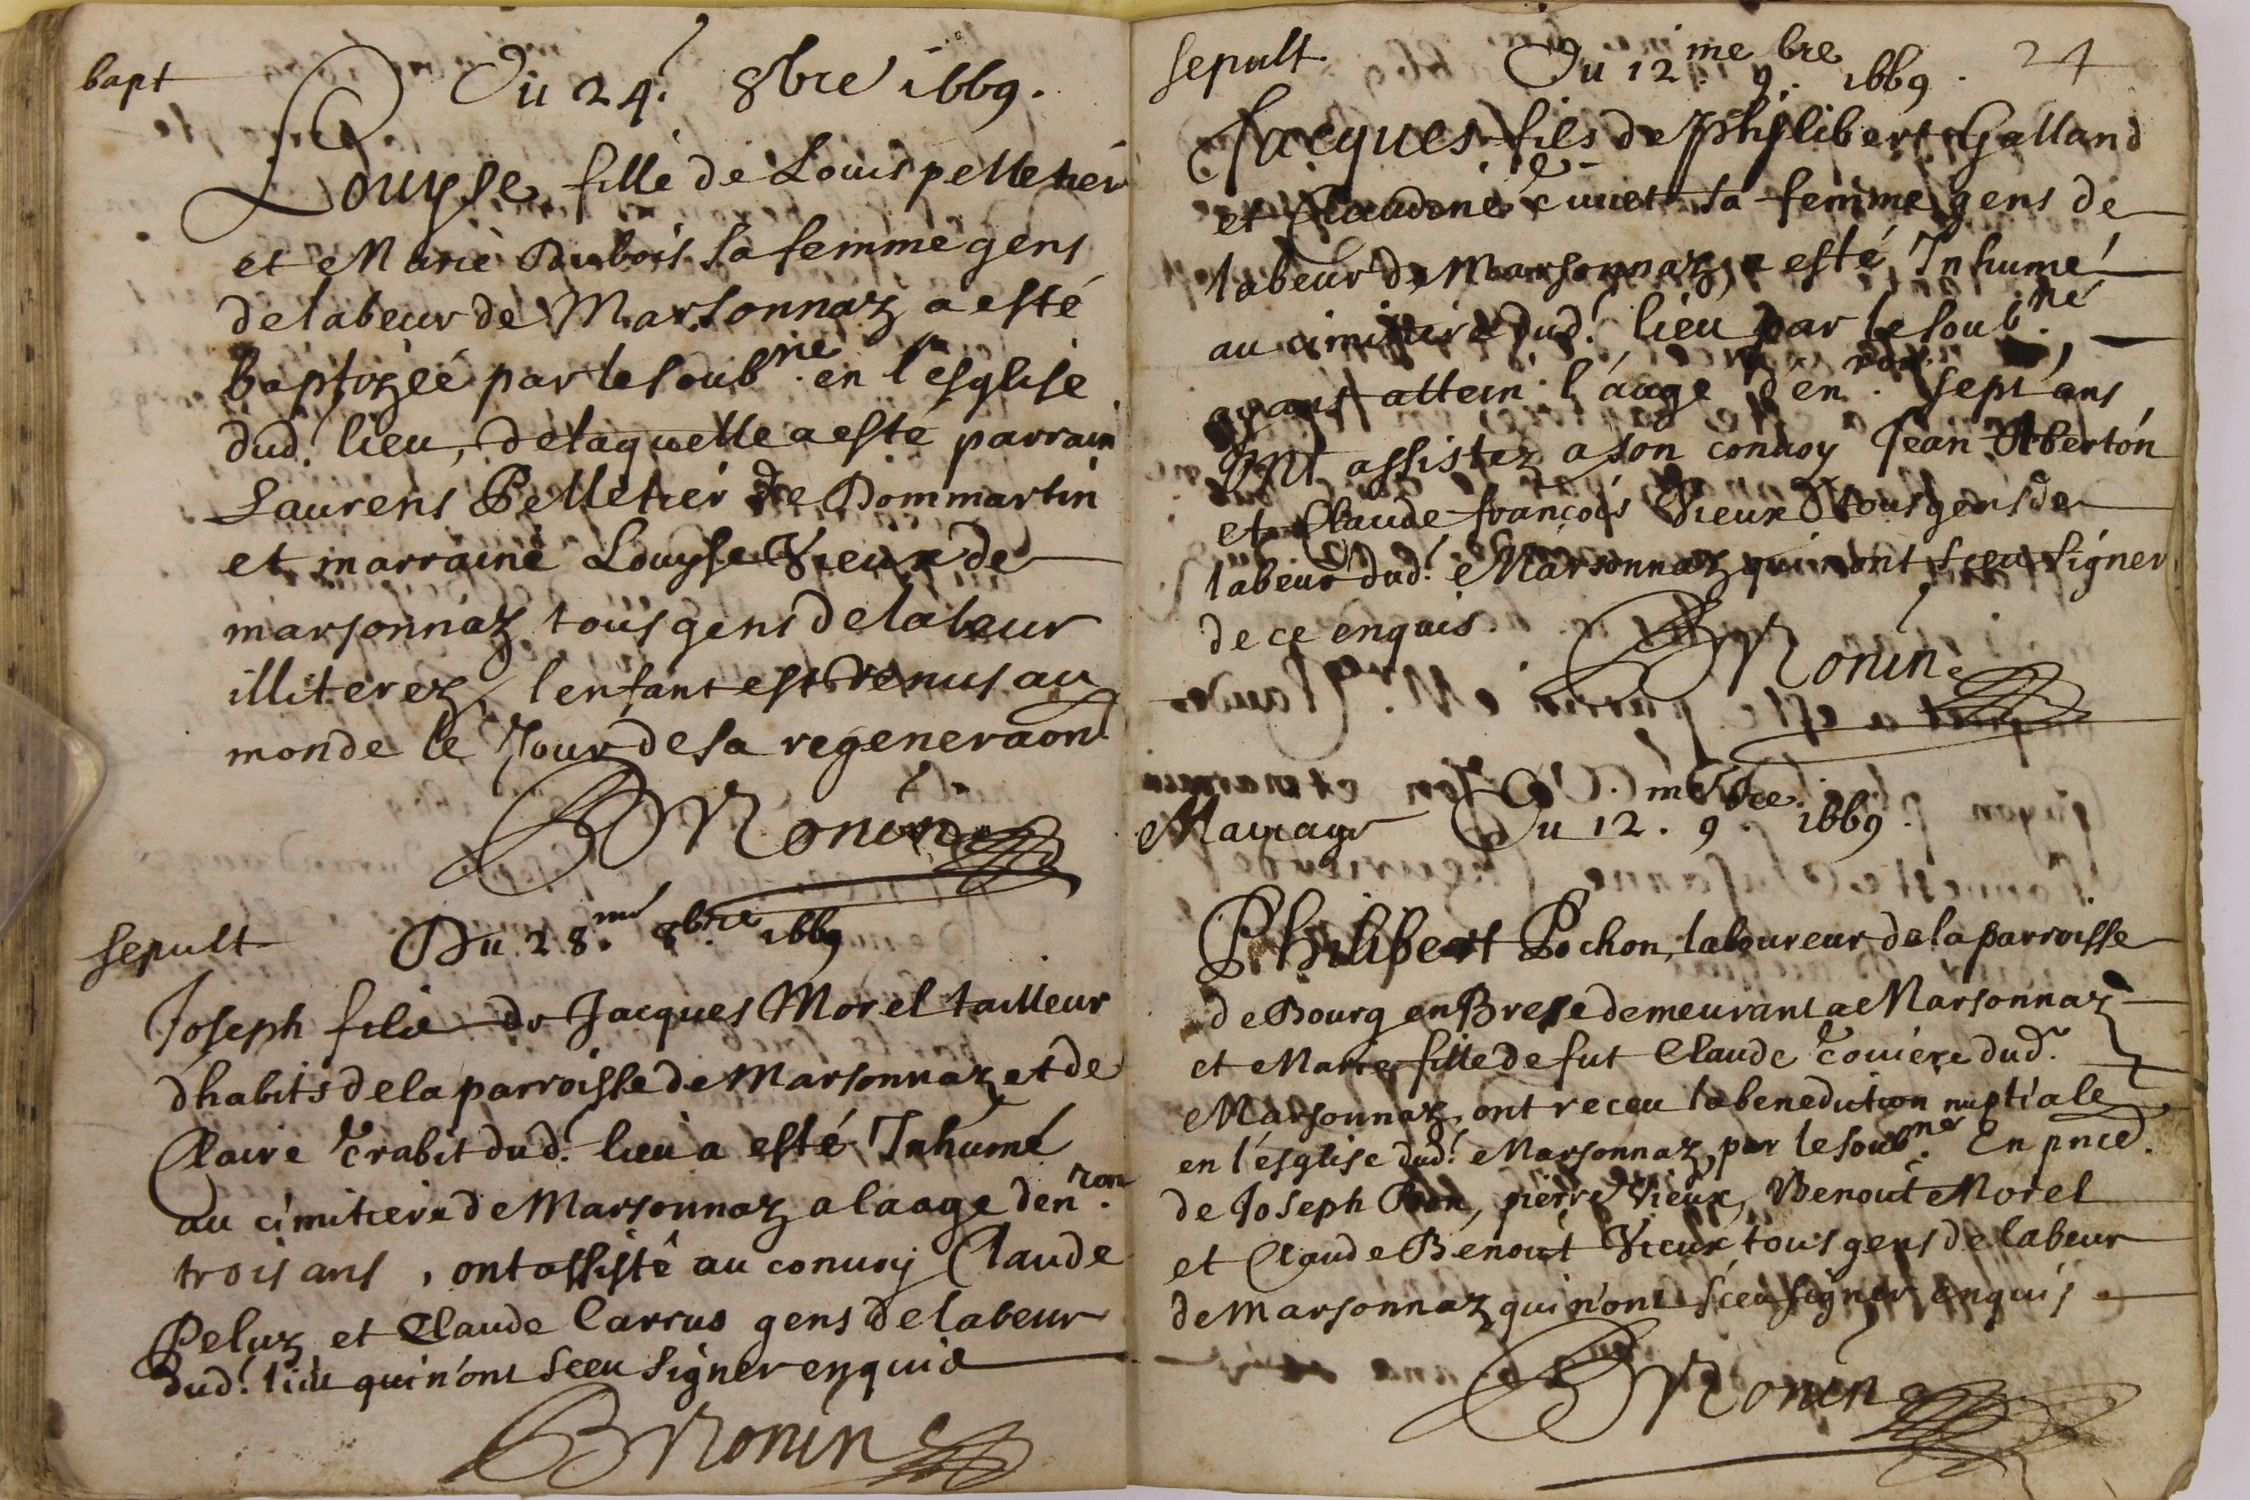 bapt
Du 24. 8bre 1669.
Louyse fille de Louis pelletier
et Marie Dubois sa femme gens
de labeur de Marsonnaz a esté
baptizéé par le soubné. en l'esglise
dud. lieu, de laquelle a esté parrain
Laurens Pelletier de Dommartin
et marraine Louyse Vieux de
marsonnaz tous gens de labeur
illiterez, lenfant est venus au
monde le Jour de sa regeneraon
BNonin
sepult
Du 28.me 8bre 1669
Joseph fils de Jacques Morel tailleur
dhabits de la parroisse de Marsonnaz et de
Claire Trabit dud. lieu a esté Inhumé
au cimitiere de Marsonnaz a laage denron.
trois ans, ont assisté au conuoy Claude
Peluz et Claude Carrus gens de labeur
dud. lieu qui n'ont sceu signer enquis
BNonin
sepult
Du 12me 9.bre 1669.
24
Jacques fils de Philibert Galland
et Claudine sa femme gens de
labeur de Marsonnaz, a esté Inhumé
au cimitiere dud. lieu par le soubné.
ayant attein l'aage d'enron. sept ans
Ont assistez a son conuoy Jean Oberton
et Claude françois Vieux tous gens de
labeur dud. Marsonnaz qui nont sceu signer
de ce enquis.
BNonin
Mariage
Du 12.me 9bre. 1669.
Philibert Pochon, laboureur de la parroisse
de Bourg en Bresse demeurant a Marsonnaz
et Marie fille de fut Claude Couiere dud.
Marsonnaz, ont receu la benediction nuptiale
en l'ésglise dud. Marsonnaz, par le soubné. En pnce d.
de Joseph Bon, pierre Vieux, Benoit Morel
et Claude Benoit Vieux tous gens de labeur
de Marsonnaz qui n'ont sceu signer enquis
BNonin